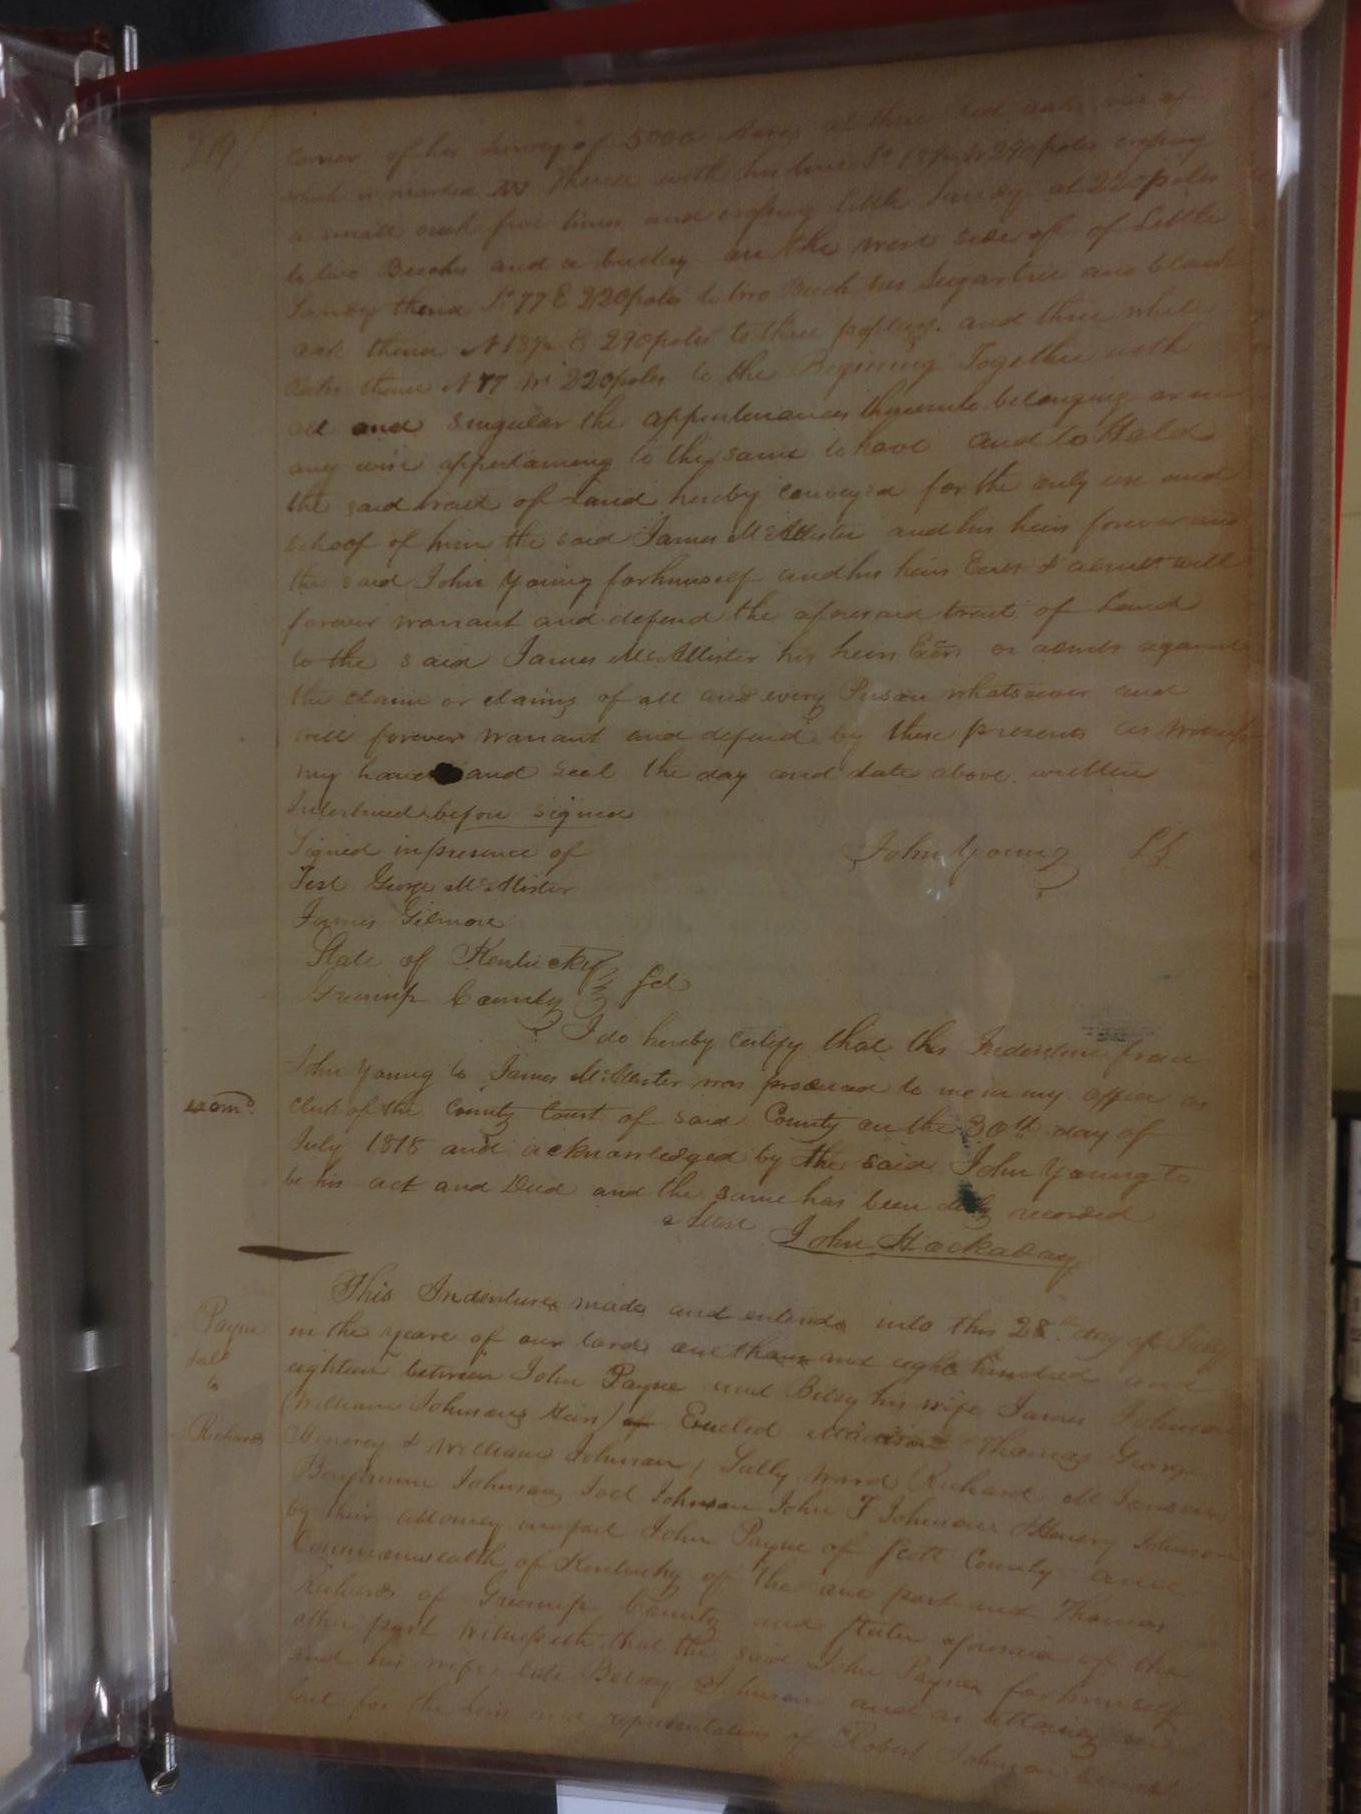 219/
corner of her survey of 5000 Acres at three red oaks one of
which is marked thence with his line So 13½ W 290 poles crossing
a small creek five times and crossing Little Sandy at 220 poles
to two Beeches and a buckey on the west side of of Little
Sandy thence So 77 E 220 poles to two Beech two Sugartree and black
oak thence N 13½ E 290 poles to three poplars. and three white
oaks thence N 77 W 220 poles to the Begining Together with
all and singular the appertenances thereunto belonging or in
any wise appertaining to the same to have and to Hold
the said tract of Land hereby conveyed for the only use and
behoof of him the said James McAllister and his heirs forever and
the said John Young for himself and his heirs Exrs & admrs will
forever warrant and defend the aforesaid tract of Land
to the said James McAllister his heirs Exrs or admrs against
the claim or claims of all and every Person whatsoever and
will forever warrant and defend by these presents as witness
my hand and seal the day and date above written
Interlined before signed
Signed in presence of John Young LS
Test George McAllister
James Gilmore
State of Kentucky
Greenup County } Sct
I do hereby certify that this Indenture from
John Young to James McAllister was produced to me in my office as
examd. clerk of the County Court of said County on the 30th day of
July 1818 and acknowledged by the said John Young to
be his act and Deed and the same has been duly recorded
attest John Hockaday
This Indenture made and entered into this 28th day of July
Payne in the yeare of our lord one thousand eight hundred and
eighteen between John Payne and Betsy his wife James Johnson
to (William Johnsons Heirs) of Euclid Thomas George
Richards & William Johnson, Sally Ward Richard M Johnson
Benjamine Johnson Joel Johnson John T Johnson Henery Johnson
by their attorney in fact John Payne of Scott County and
Commonwealth of Kentucky of the one part and Thomas
Richards of Greenup County and State aforesaid of the
other part witnesseth that the said John Payne for himself
and his wife late Betsy Johnson and as attorney in
fact for the heirs and representatives of Robert Johnson